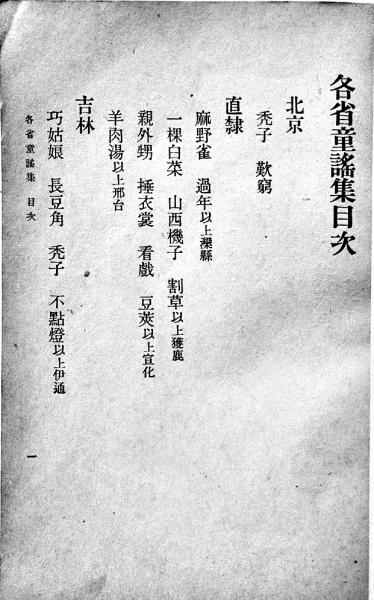 各省童謠集目次
北京
禿子　歎窮
直隸
麻野雀　過年以上灤縣
一棵白菜　山西機子　割草以上獲鹿
親外甥　捶衣裳　看戲　豆莢以上宣化
羊肉湯以上邢台
吉林
巧姑娘　長豆角　禿子　不點燈以上伊通
各省童謠集　目次
一